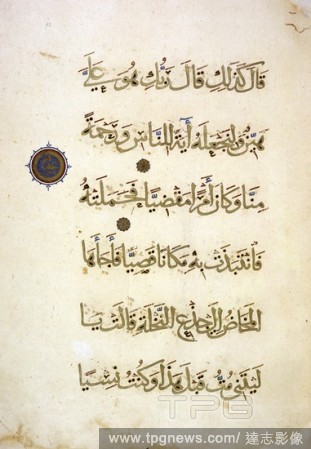 قَالَ كَذَٰلِكِ قَالَ رَبُّكِ هُوَ عَلَيَّ
هَيِّنٌ وَلِنَجْعَلَهُ آيَةً لِلنَّاسِ وَرَحْمَةً
مِنَّا وَكَانَ أَمْرًا مَقْضِيًّا فَحَمَلَتْهُ
فَانْتَبَذَتْ بِهِ مَكَانًا قَصِيًّا فَأَجَاءَهَا
الْمَخَاضُ إِلَىٰ جِذْعِ النَّخْلَةِ قَالَتْ يَا
لَيْتَنِي مِتُّ قَبْلَ هَذَا وَكُنْتُ نَسْيًا
TPG
www.tpgnews.com / 達志影像